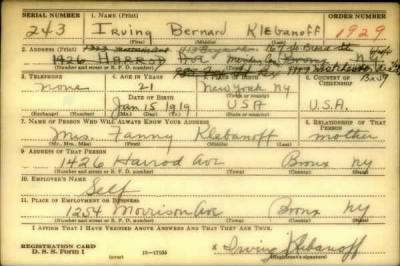 SERIAL NUMBER 1. NAME (Print) ORDER NUMBER
243 Irving Bernard Klebanoff 1929
(First) (Middle) (Last)
2. ADDRESS (Print)
1426 HARROD Ave
(Number and street or R. F. D. number) (Town) (County) (State)
3. TELEPHONE 4. AGE IN YEARS 5. PLACE OF BIRTH 6. COUNTRY OF CITIZENSHIP
none 21 New York NY
DATE OF BIRTH
Jan 15 1919 USA U.S.A.
(Exchange) (Number) (Mo.) (Day) (Yr.) (State or country)
7. NAME OF PERSON WHO WILL ALWAYS KNOW YOUR ADDRESS 8. RELATIONSHIP OF THAT PERSON
Mrs. Fanny Klebanoff mother
(Mr., Mrs., Miss) (First) (Middle) (Last)
9. ADDRESS OF THAT PERSON
1426 Harrod Ave Bronx NY
(Number and street or R. F. D. number) (Town) (County) (State)
10. EMPLOYER'S NAME
Self
11. PLACE OF EMPLOYMENT OR BUSINESS
1254 Morrison Ave Bronx NY
(Number and street or R. F. D. number) (Town) (County) (State)
I AFFIRM THAT I HAVE VERIFIED ABOVE ANSWERS AND THAT THEY ARE TRUE.
REGISTRATION CARD
D. S. S. Form 1 16—17105 x Irving Klebanoff
(Registrant's signature)